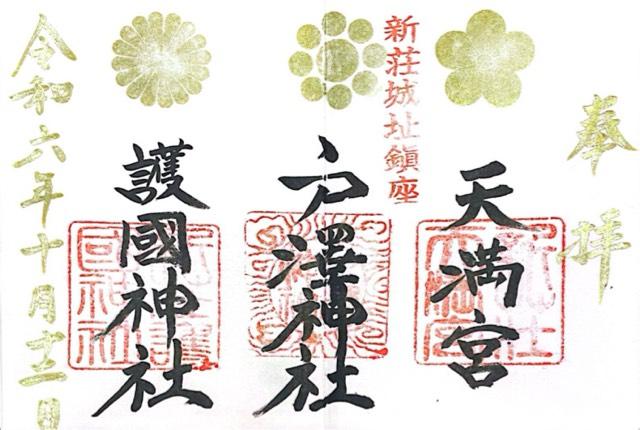 奉拝
天満宮
新荘城址鎮座
戸澤神社
護國神社
令和六年十月十二日